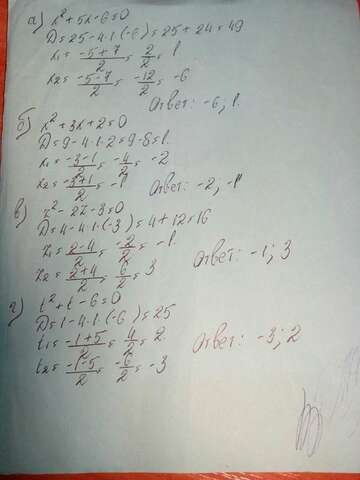 а) x² + 5x - 6 = 0
D = 25 - 4·1·(-6) = 25 + 24 = 49
x₁ = (-5+7)/2 = 2/2 = 1
x₂ = (-5-7)/2 = -12/2 = -6
Ответ: -6; 1.
б) x² + 3x + 2 = 0
D = 9 - 4·1·2 = 9 - 8 = 1.
x₁ = (-3-1)/2 = -4/2 = -2
x₂ = (-3+1)/2 = -1 Ответ: -2; -1
в) z² - 2z - 3 = 0
D = 4 - 4·1·(-3) = 4 + 12 = 16
z₁ = (2-4)/2 = -2/2 = -1.
z₂ = (2+4)/2 = 6/2 = 3 Ответ: -1; 3
г) t² + t - 6 = 0
D = 1 - 4·1·(-6) = 25
t₁ = (-1+5)/2 = 4/2 = 2. Ответ: -3; 2
t₂ = (-1-5)/2 = -6/2 = -3